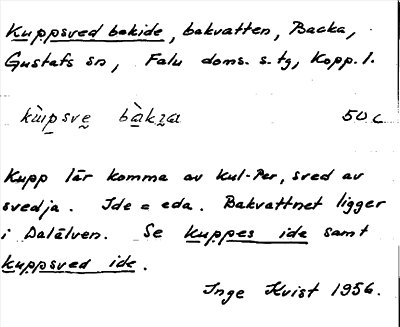 Kuppsved bakide, bakvatten, Backa,
Gustafs sn, Falu doms. s. tg, Kopp. l.
50 c
Kupp lär komma av Kul-Per, sved av
svedja. Ide = eda. Bakvattnet ligger
i Dalälven. Se Kuppes ide samt
Kuppsved ide.
Inge Kvist 1956.